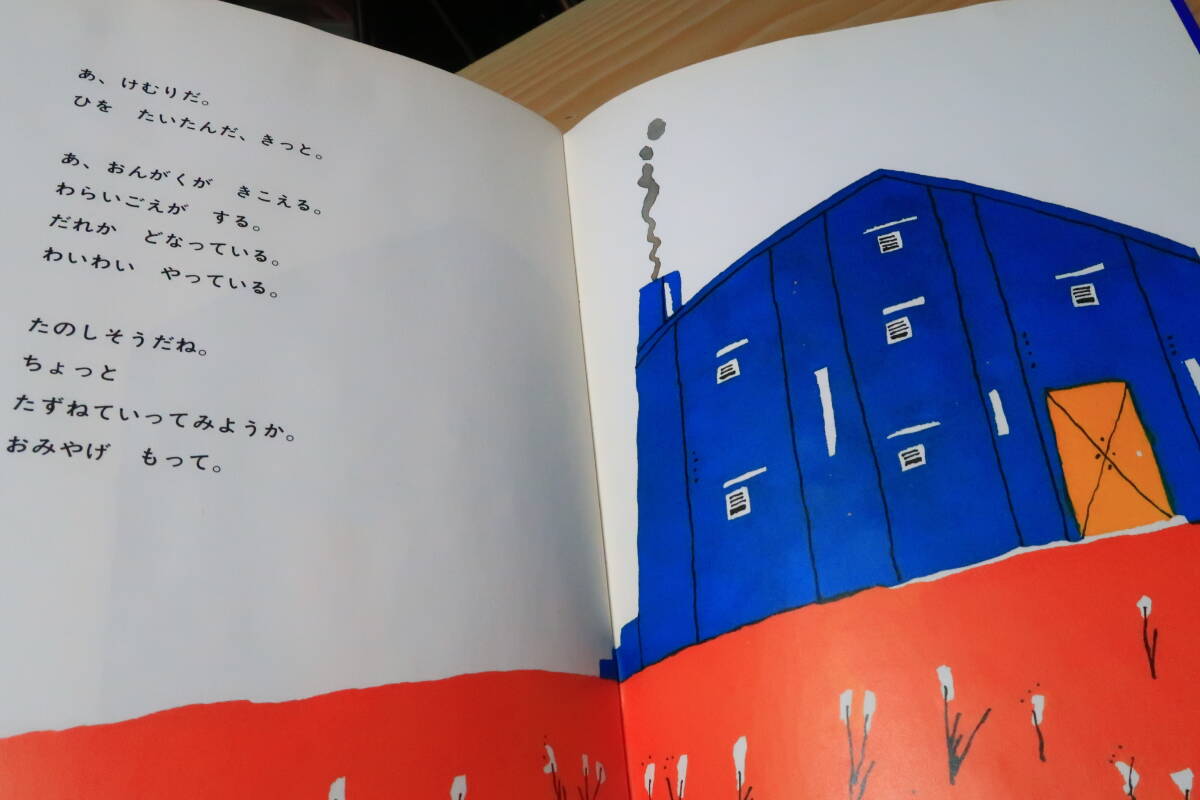 あ、けむりだ。
ひを　たいたんだ、きっと。
あ、おんがくが　きこえる。
わらいごえが　する。
だれか　どなっている。
わいわい　やっている。
たのしそうだね。
ちょっと
たずねていってみようか。
おみやげ　もって。